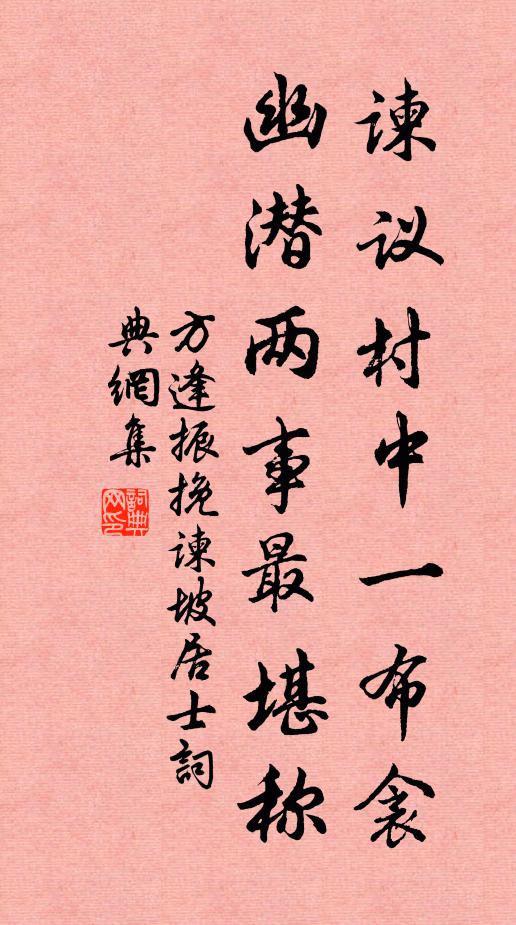 谏议村中一布衾
幽潜两事最堪称
方逢振挽谏坡居士詞
典網集
詞典
网印